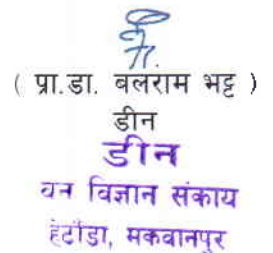 ( प्रा.डा. बलराम भट्ट )
डीन
डीन
वन विज्ञान संकाय
हेटौंडा, मकवानपुर